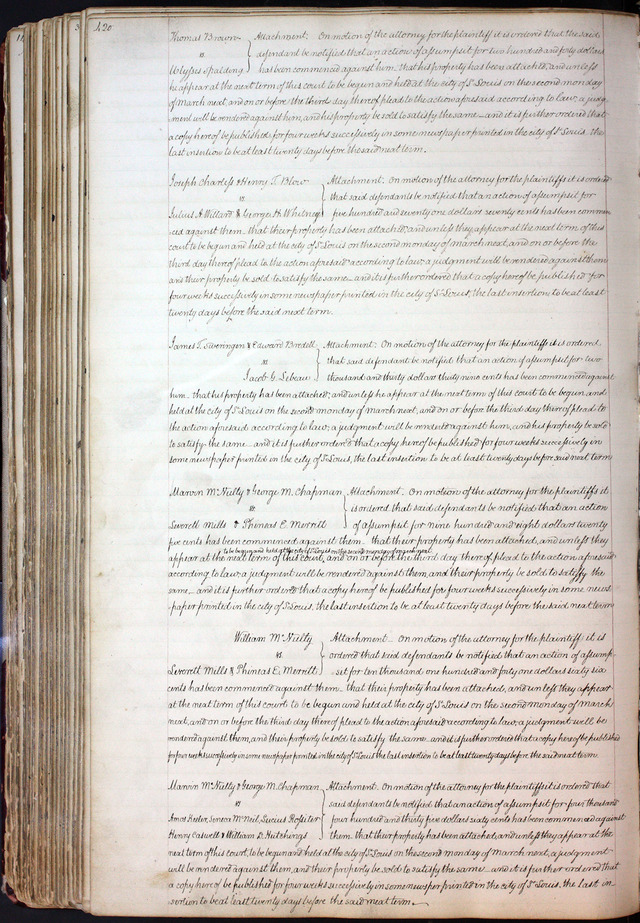 420
Thomas Brown } Attachment. On motion of the attorney for the plaintiff it is ordered that the said
vs defendant be notified that an action of assumpsit for two hundred and forty dollars
Ulysses Spalding has been commenced against him, that his property has been attached, and unless
he appear at the next term of this court to be begun and held at the city of St. Louis on the second monday
of march next, and on or before the third day thereof plead to the action aforesaid according to law, a judg-
ment will be rendered against him, and his property be sold to satisfy the same — and it is further ordered that
a copy hereof be published for four weeks successively in some newspaper printed in the city of St. Louis, the
last insertion to be at least twenty days before the said next term.
Joseph Charless & Henry T. Blow } Attachment. On motion of the attorney for the plaintiffs it is ordered
vs that said defendants be notified that an action of assumpsit for
Julius A. Willard & George H. Whitney five hundred and seventy one dollars seventy cents has been commen-
ced against them — that their property has been attached, and unless they appear at the next term of this
court to be begun and held at the city of St. Louis on the second monday of march next, and on or before the
third day thereof plead to the action aforesaid according to law, a judgment will be rendered against them
and their property be sold to satisfy the same — and it is further ordered that a copy hereof be published for
four weeks successively in some newspaper printed in the city of St. Louis, the last insertion to be at least
twenty days before the said next term.
James T. Sweringen & Edward Bredell } Attachment. On motion of the attorney for the plaintiffs it is ordered
vs that said defendant be notified that an action of assumpsit for two
Jacob G. Lebeau thousand and thirty dollars thirty nine cents has been commenced against
him — that his property has been attached, and unless he appear at the next term of this court to be begun and
held at the city of St. Louis on the second monday of march next, and on or before the third day thereof plead to
the action aforesaid according to law, a judgment will be rendered against him, and his property be sold
to satisfy the same — and it is further ordered that a copy hereof be published for four weeks successively in
some newspaper printed in the city of St. Louis, the last insertion to be at least twenty days before said next term
Marvin McNulty & George M. Chapman } Attachment. On motion of the attorney for the plaintiffs it
vs is ordered that said defendants be notified that an action
Leverett Mills & Phineas E. Merrill of assumpsit for nine hundred and eight dollars twenty
five cents has been commenced against them — that their property has been attached, and unless they
to be begun and held at the city of St. Louis on the second monday of march next
appear at the next term of this court, and on or before the third day thereof plead to the action aforesaid
according to law, a judgment will be rendered against them, and their property be sold to satisfy the
same — and it is further ordered that a copy hereof be published for four weeks successively in some news
-paper printed in the city of St. Louis, the last insertion to be at least twenty days before the said next term
William McNulty } Attachment. On motion of the attorney for the plaintiff it is
vs ordered that said defendants be notified that an action of assump-
Leverett Mills & Phineas E. Merrill -sit for ten thousand one hundred and forty one dollars sixty six
cents has been commenced against them — that their property has been attached, and unless they appear
at the next term of this court to be begun and held at the city of St. Louis on the second monday of march
next, and on or before the third day thereof plead to the action aforesaid according to law, a judgment will be
rendered against them, and their property be sold to satisfy the same — and it is further ordered that a copy hereof be published
four weeks successively in some newspaper printed in the city of St. Louis the last insertion to be at least twenty days before the said next term.
Marvin McNulty & George M. Chapman } Attachment. On motion of the attorney for the plaintiffs it is ordered that
vs said defendants be notified that an action of assumpsit for four thousand
Amos Keeler, Seneca McNeil, Lucius Rossiter four hundred and thirty five dollars sixty cents has been commenced against
Henry Caswell & William D. Hutchings them — that their property has been attached, and unless they appear at the
next term of this court, to be begun and held at the city of St. Louis on the second monday of march next, a judgment
will be rendered against them, and their property be sold to satisfy the same — and it is further ordered that
a copy hereof be published for four weeks successively in some newspaper printed in the city of St. Louis, the last in
sertion to be at least twenty days before the said next term.